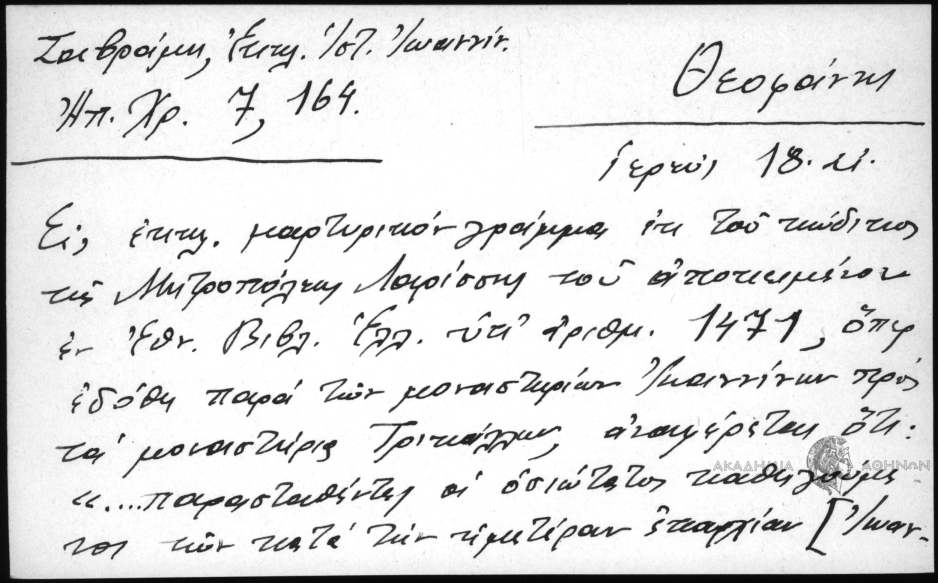 Σαβράμη, Ἐκκλ. Ἱστ. Ἰωαννίν.
Ἠπ. Χρ. 7, 164.
Θεοφάνης
Ἱερεύς 18. αἰ.
Εἰς ἐκκλ. μαρτυρικόν γράμμα ἐκ τοῦ κώδικος
τῆς Μητροπόλεως Λαρίσσης τοῦ ἀποκειμένου
ἐν Ἐθν. Βιβλ. Ἑλλ. ὑπ' ἀριθμ. 1471, ὅπερ
ἐδόθη παρά τῶν μοναστηρίων Ἰωαννίνων πρός
τά μοναστήρια Τρικάλων, ἀναφέρεται ὅτι:
ΑΚΑΔΗΜΙΑ ΑΘΗΝΩΝ
«....παρασταθέντες οἱ ὁσιώτατοι καθηγούμε
νοι τῶν κατά τήν ἡμετέραν ἐπαρχίαν [Ἰωαν-